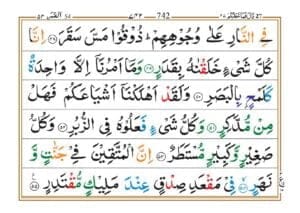 742
فِي النَّارِ عَلٰى وُجُوْهِهِمْ ؕ ذُوْقُوْا مَسَّ سَقَرَ ۝ اِنَّا
كُلَّ شَیْءٍ خَلَقْنٰهُ بِقَدَرٍ ۝ وَمَاۤ اَمْرُنَاۤ اِلَّا وَاحِدَةٌ
كَلَمْحٍۭ بِالْبَصَرِ ۝ وَلَقَدْ اَهْلَكْنَاۤ اَشْيَاعَكُمْ فَهَلْ
مِنْ مُّدَّكِرٍ ۝ وَكُلُّ شَیْءٍ فَعَلُوْهُ فِي الزُّبُرِ ۝ وَكُلُّ
صَغِيْرٍ وَّكَبِيْرٍ مُّسْتَطَرٌ ۝ اِنَّ الْمُتَّقِيْنَ فِيْ جَنّٰتٍ وَّ
نَهَرٍ ۝ فِيْ مَقْعَدِ صِدْقٍ عِنْدَ مَلِيْكٍ مُّقْتَدِرٍ ۝